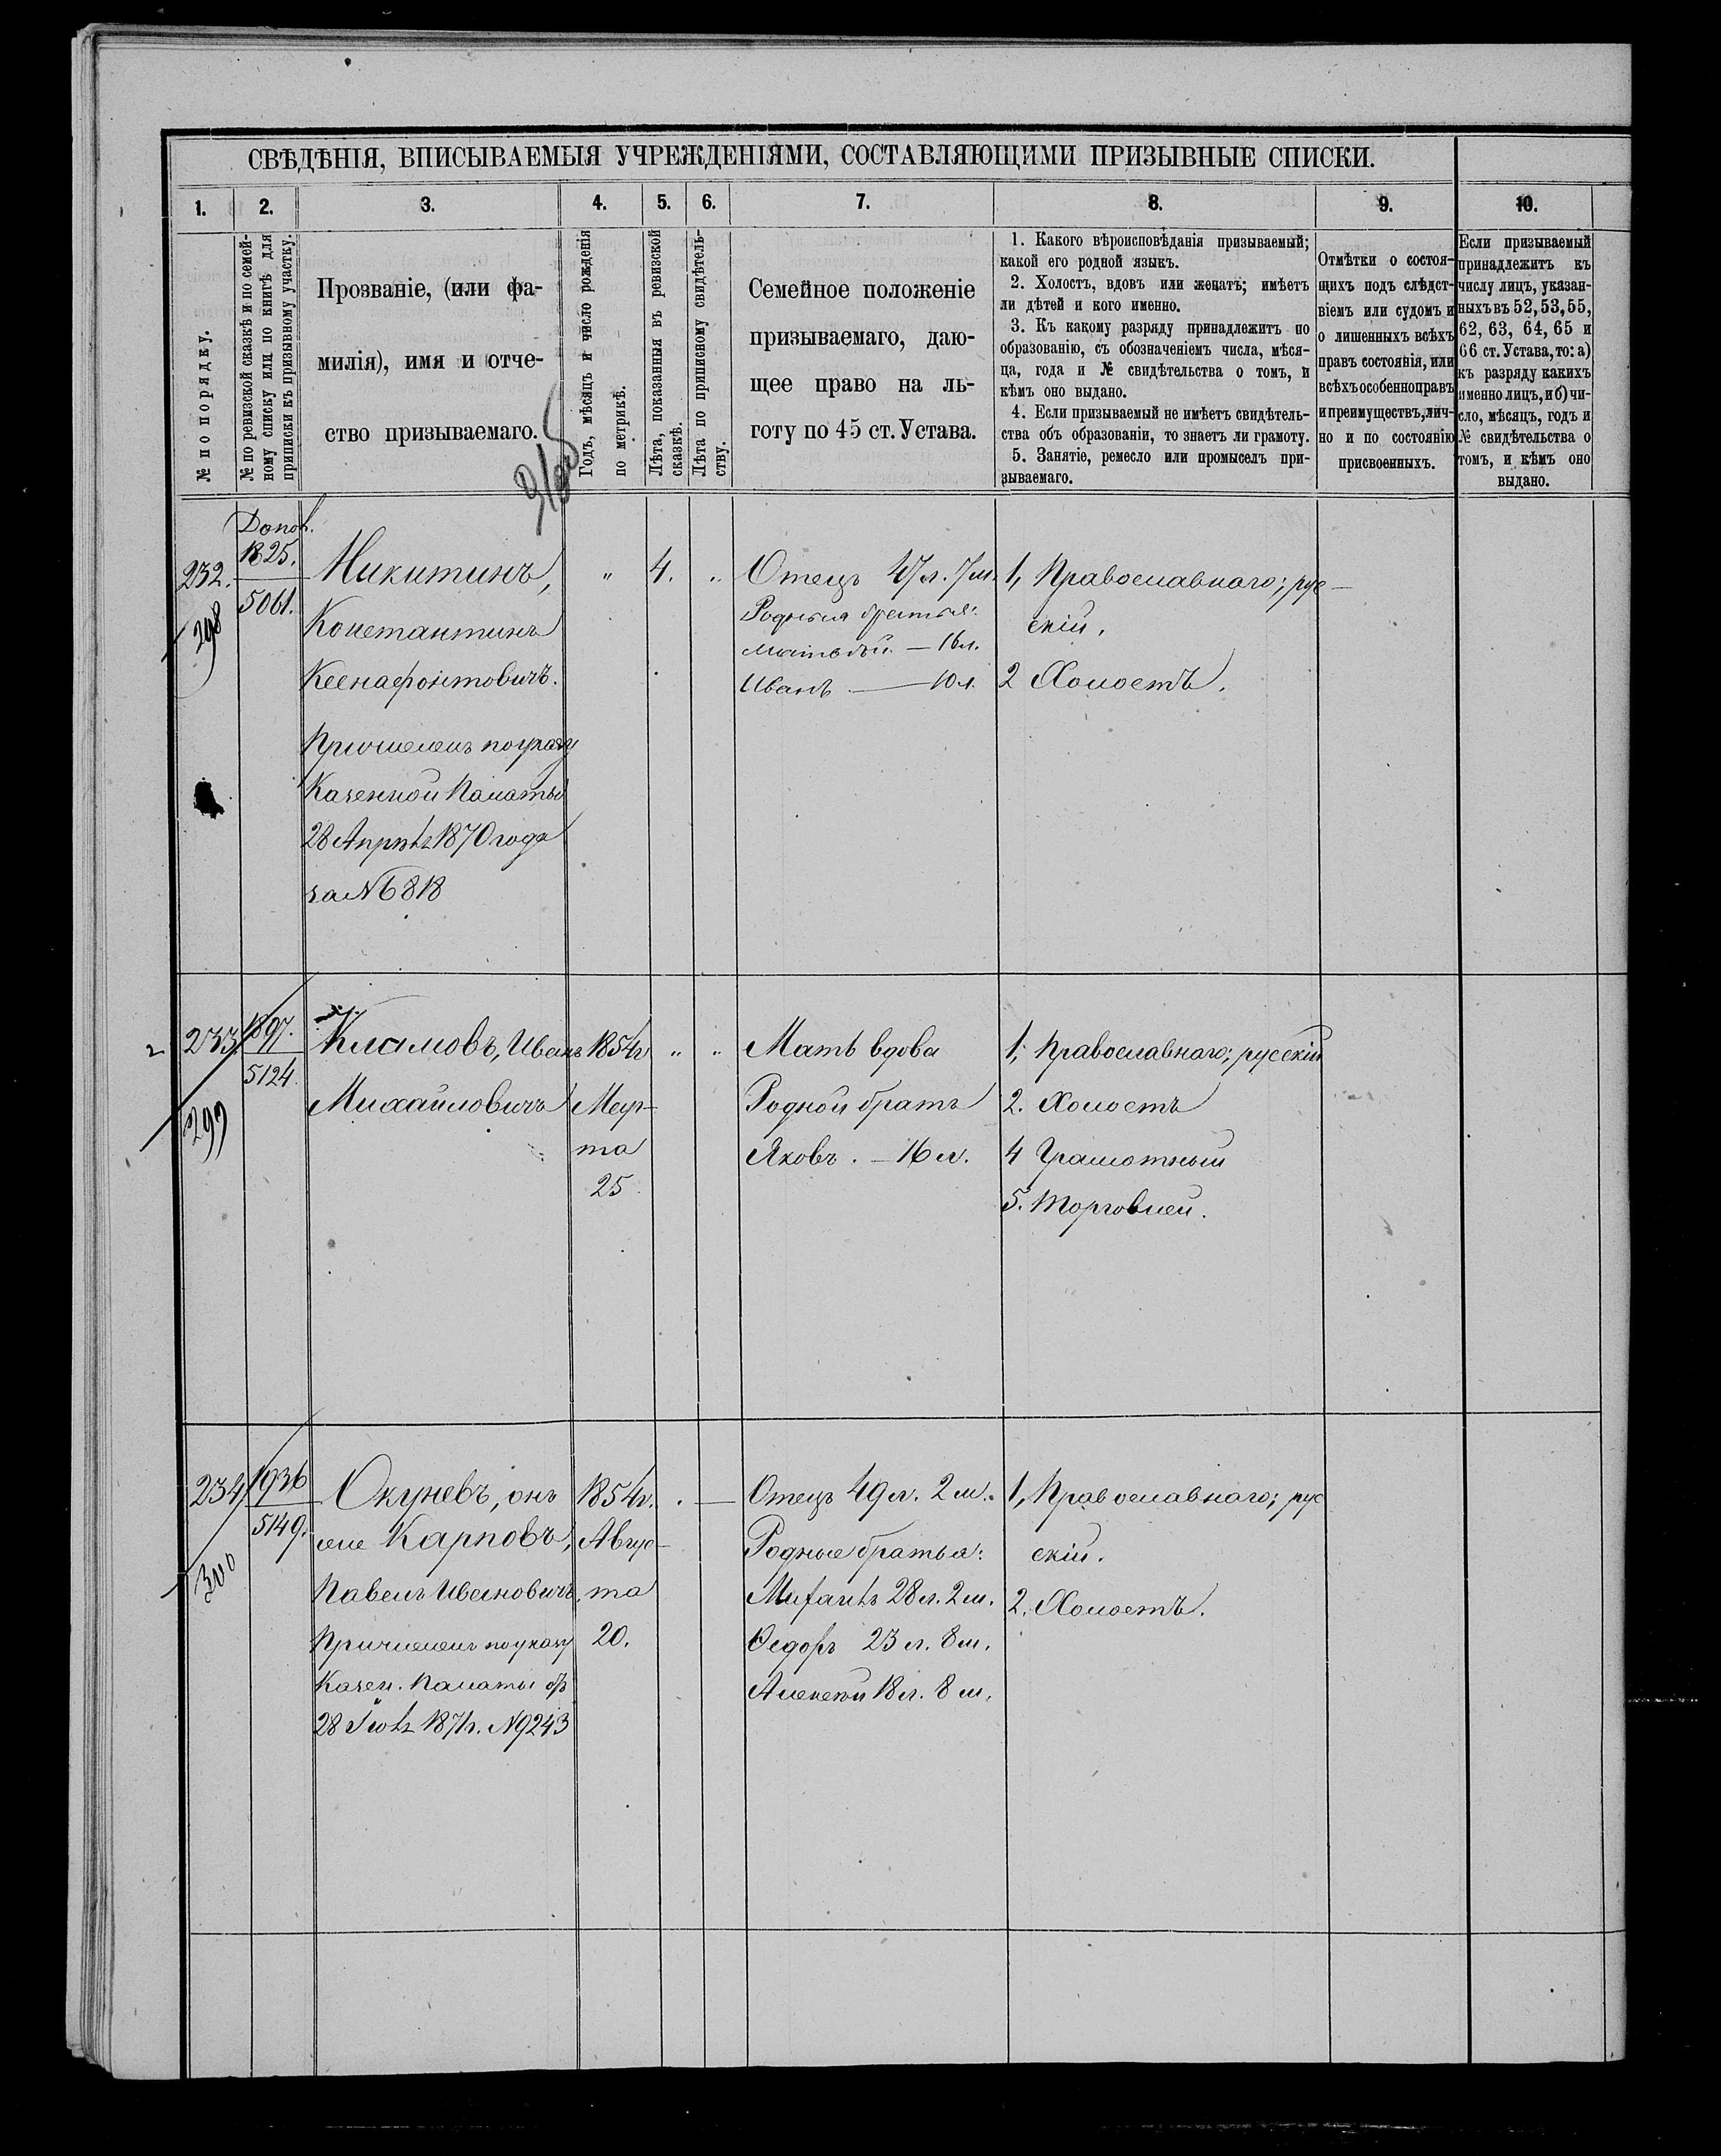 СВѢДѢНІЯ, ВПИСЫВАЕМЫЯ УЧРЕЖДЕНІЯМИ, СОСТАВЛЯЮЩИМИ ПРИЗЫВНЫЕ СПИСКИ.
1.
2.
3.
4.
5.
6.
7.
8.
9.
10.
№ по порядку.
№ по ревизской сказкѣ и по семей-
ному списку или по книгѣ для
приписки къ призывному участку.
Прозваніе, (или фа-
милія), имя и отче-
ство призываемаго.
Годъ, мѣсяцъ и число рожденія
по метрикѣ.
Лѣта, показанныя въ ревизской
сказкѣ.
Лѣта по приписному свидѣтель-
ству.
Семейное положеніе
призываемаго, даю-
щее право на ль-
готу по 45 ст. Устава.
1. Какого вѣроисповѣданія призываемый;
какой его родной языкъ.
2. Холостъ, вдовъ или женатъ; имѣетъ
ли дѣтей и кого именно.
3. Къ какому разряду принадлежитъ по
образованію, съ обозначеніемъ числа, мѣся-
ца, года и № свидѣтельства о томъ, и
кѣмъ оно выдано.
4. Если призываемый не имѣетъ свидѣтель-
ства объ образованіи, то знаетъ ли грамоту.
5. Занятіе, ремесло или промыселъ при-
зываемаго.
Отмѣтки о состоя-
щихъ подъ слѣдст-
віемъ или судомъ и
о лишенныхъ всѣхъ
правъ состоянія, или
всѣхъ особенно правъ
и преимуществъ, лич-
но и по состоянію
присвоенныхъ.
Если призываемый
принадлежитъ къ
числу лицъ, указан-
ныхъ въ 52, 53, 55,
62, 63, 64, 65 и
66 ст. Устава, то: а)
къ разряду какихъ
именно лицъ, и б) чи-
сло, мѣсяцъ, годъ и
№ свидѣтельства о
томъ, и кѣмъ оно
выдано.
232.
298
1825.
5061.
Никитинъ,
Константинъ
Ксенафонтовичъ.
Причисленъ по указу
Казенной Палаты
28 Апрѣля 1870 года
за N 6818
"
4.
"
Отецъ 47 л. 7 м.
Родныя братья:
Матвѣй. — 16 л.
Иванъ — 10 л.
1, Православнаго; рус-
скій.
2 Холостъ.
2
233.
299
1897.
5124.
Климовъ, Иванъ
Михайловичъ
1854 г
Мар-
та
25
"
"
Мать вдова
Родной братъ
Яковъ. — 16 л.
1, Православнаго; русскій
2. Холостъ
4 Грамотный
5. Торговлей.
234
300
1936
5149.
Окуневъ, онъ
же Карповъ,
Павелъ Ивановичъ,
Причисленъ по указу
Казен. Палаты отъ
28 Іюля 1871 г. N 9243
1854 г.
Авгус-
та
20.
Отецъ 49 л. 2 м.
Родные братья:
Михаилъ 28 л. 2 м.
Ѳедоръ 23 л. 8 м.
Алексѣй 18 л. 8 м.
1, Православнаго; рус
скій.
2. Холостъ.